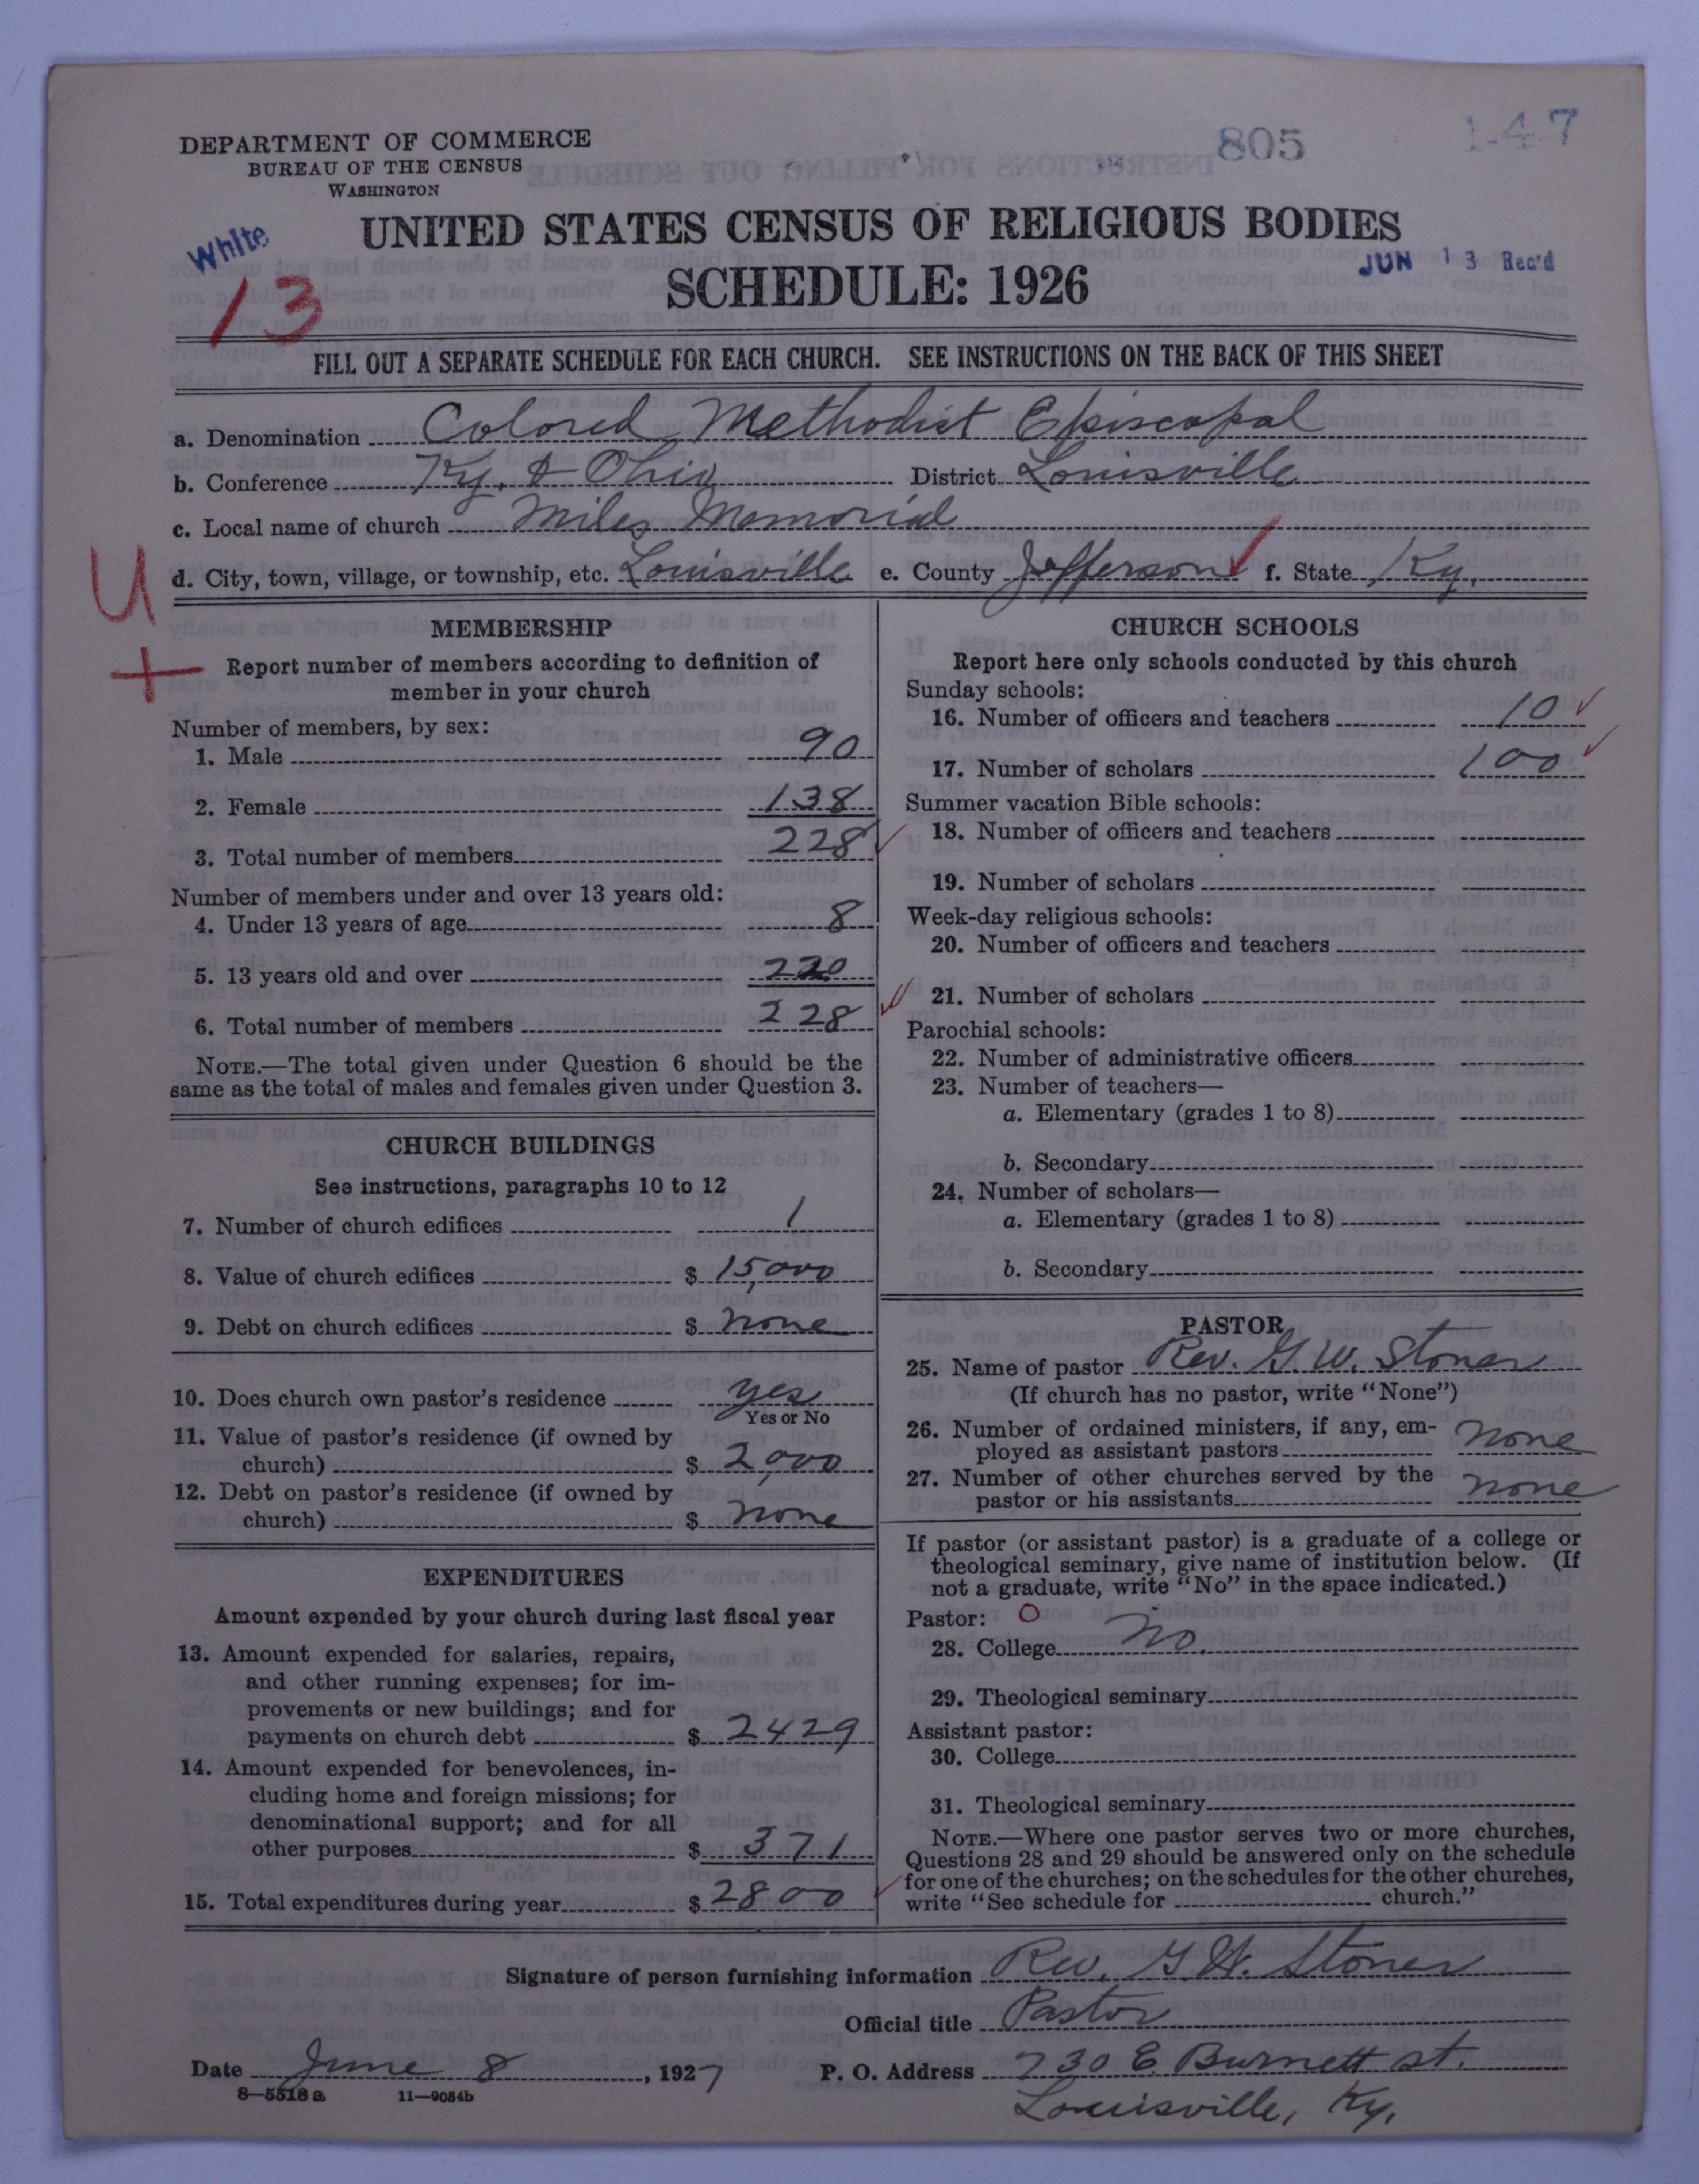 805
1-4-7
DEPARTMENT OF COMMERCE
BUREAU OF THE CENSUS
WASHINGTON
White
13
UNITED STATES CENSUS OF RELIGIOUS BODIES
SCHEDULE: 1926
JUN 13 Rec'd
FILL OUT A SEPARATE SCHEDULE FOR EACH CHURCH. SEE INSTRUCTIONS ON THE BACK OF THIS SHEET
a. Denomination Colored Methodist Episcopal
b. Conference Ky. & Ohio District Louisville
c. Local name of church Miles Memorial
d. City, town, village, or township, etc. Louisville e. County Jefferson f. State Ky.
U
+
MEMBERSHIP
Report number of members according to definition of
member in your church
Number of members, by sex:
1. Male 90
2. Female 138
3. Total number of members 228
Number of members under and over 13 years old:
4. Under 13 years of age 8
5. 13 years old and over 220
6. Total number of members 228
NOTE.—The total given under Question 6 should be the
same as the total of males and females given under Question 3.
CHURCH BUILDINGS
See instructions, paragraphs 10 to 12
7. Number of church edifices 1
8. Value of church edifices $ 15,000
9. Debt on church edifices $ none
10. Does church own pastor's residence yes
Yes or No
11. Value of pastor's residence (if owned by
church) $ 2,000
12. Debt on pastor's residence (if owned by
church) $ none
EXPENDITURES
Amount expended by your church during last fiscal year
13. Amount expended for salaries, repairs,
and other running expenses; for im-
provements or new buildings; and for
payments on church debt $ 2429
14. Amount expended for benevolences, in-
cluding home and foreign missions; for
denominational support; and for all
other purposes $ 371
15. Total expenditures during year $ 2800
CHURCH SCHOOLS
Report here only schools conducted by this church
Sunday schools:
16. Number of officers and teachers 10
17. Number of scholars 100
Summer vacation Bible schools:
18. Number of officers and teachers
19. Number of scholars
Week-day religious schools:
20. Number of officers and teachers
21. Number of scholars
Parochial schools:
22. Number of administrative officers
23. Number of teachers—
a. Elementary (grades 1 to 8)
b. Secondary
24. Number of scholars—
a. Elementary (grades 1 to 8)
b. Secondary
PASTOR
25. Name of pastor Rev. G. W. Stoner
(If church has no pastor, write "None")
26. Number of ordained ministers, if any, em-
ployed as assistant pastors none
27. Number of other churches served by the
pastor or his assistants none
If pastor (or assistant pastor) is a graduate of a college or
theological seminary, give name of institution below. (If
not a graduate, write "No" in the space indicated.)
Pastor: O
28. College No
29. Theological seminary
Assistant pastor:
30. College
31. Theological seminary
NOTE.—Where one pastor serves two or more churches,
Questions 28 and 29 should be answered only on the schedule
for one of the churches; on the schedules for the other churches,
write "See schedule for church."
Signature of person furnishing information Rev. G W. Stoner
Official title Pastor
Date June 8, 1927 P. O. Address 730 E. Burnett st.
8—5518 a 11—9054b
Louisville, Ky.